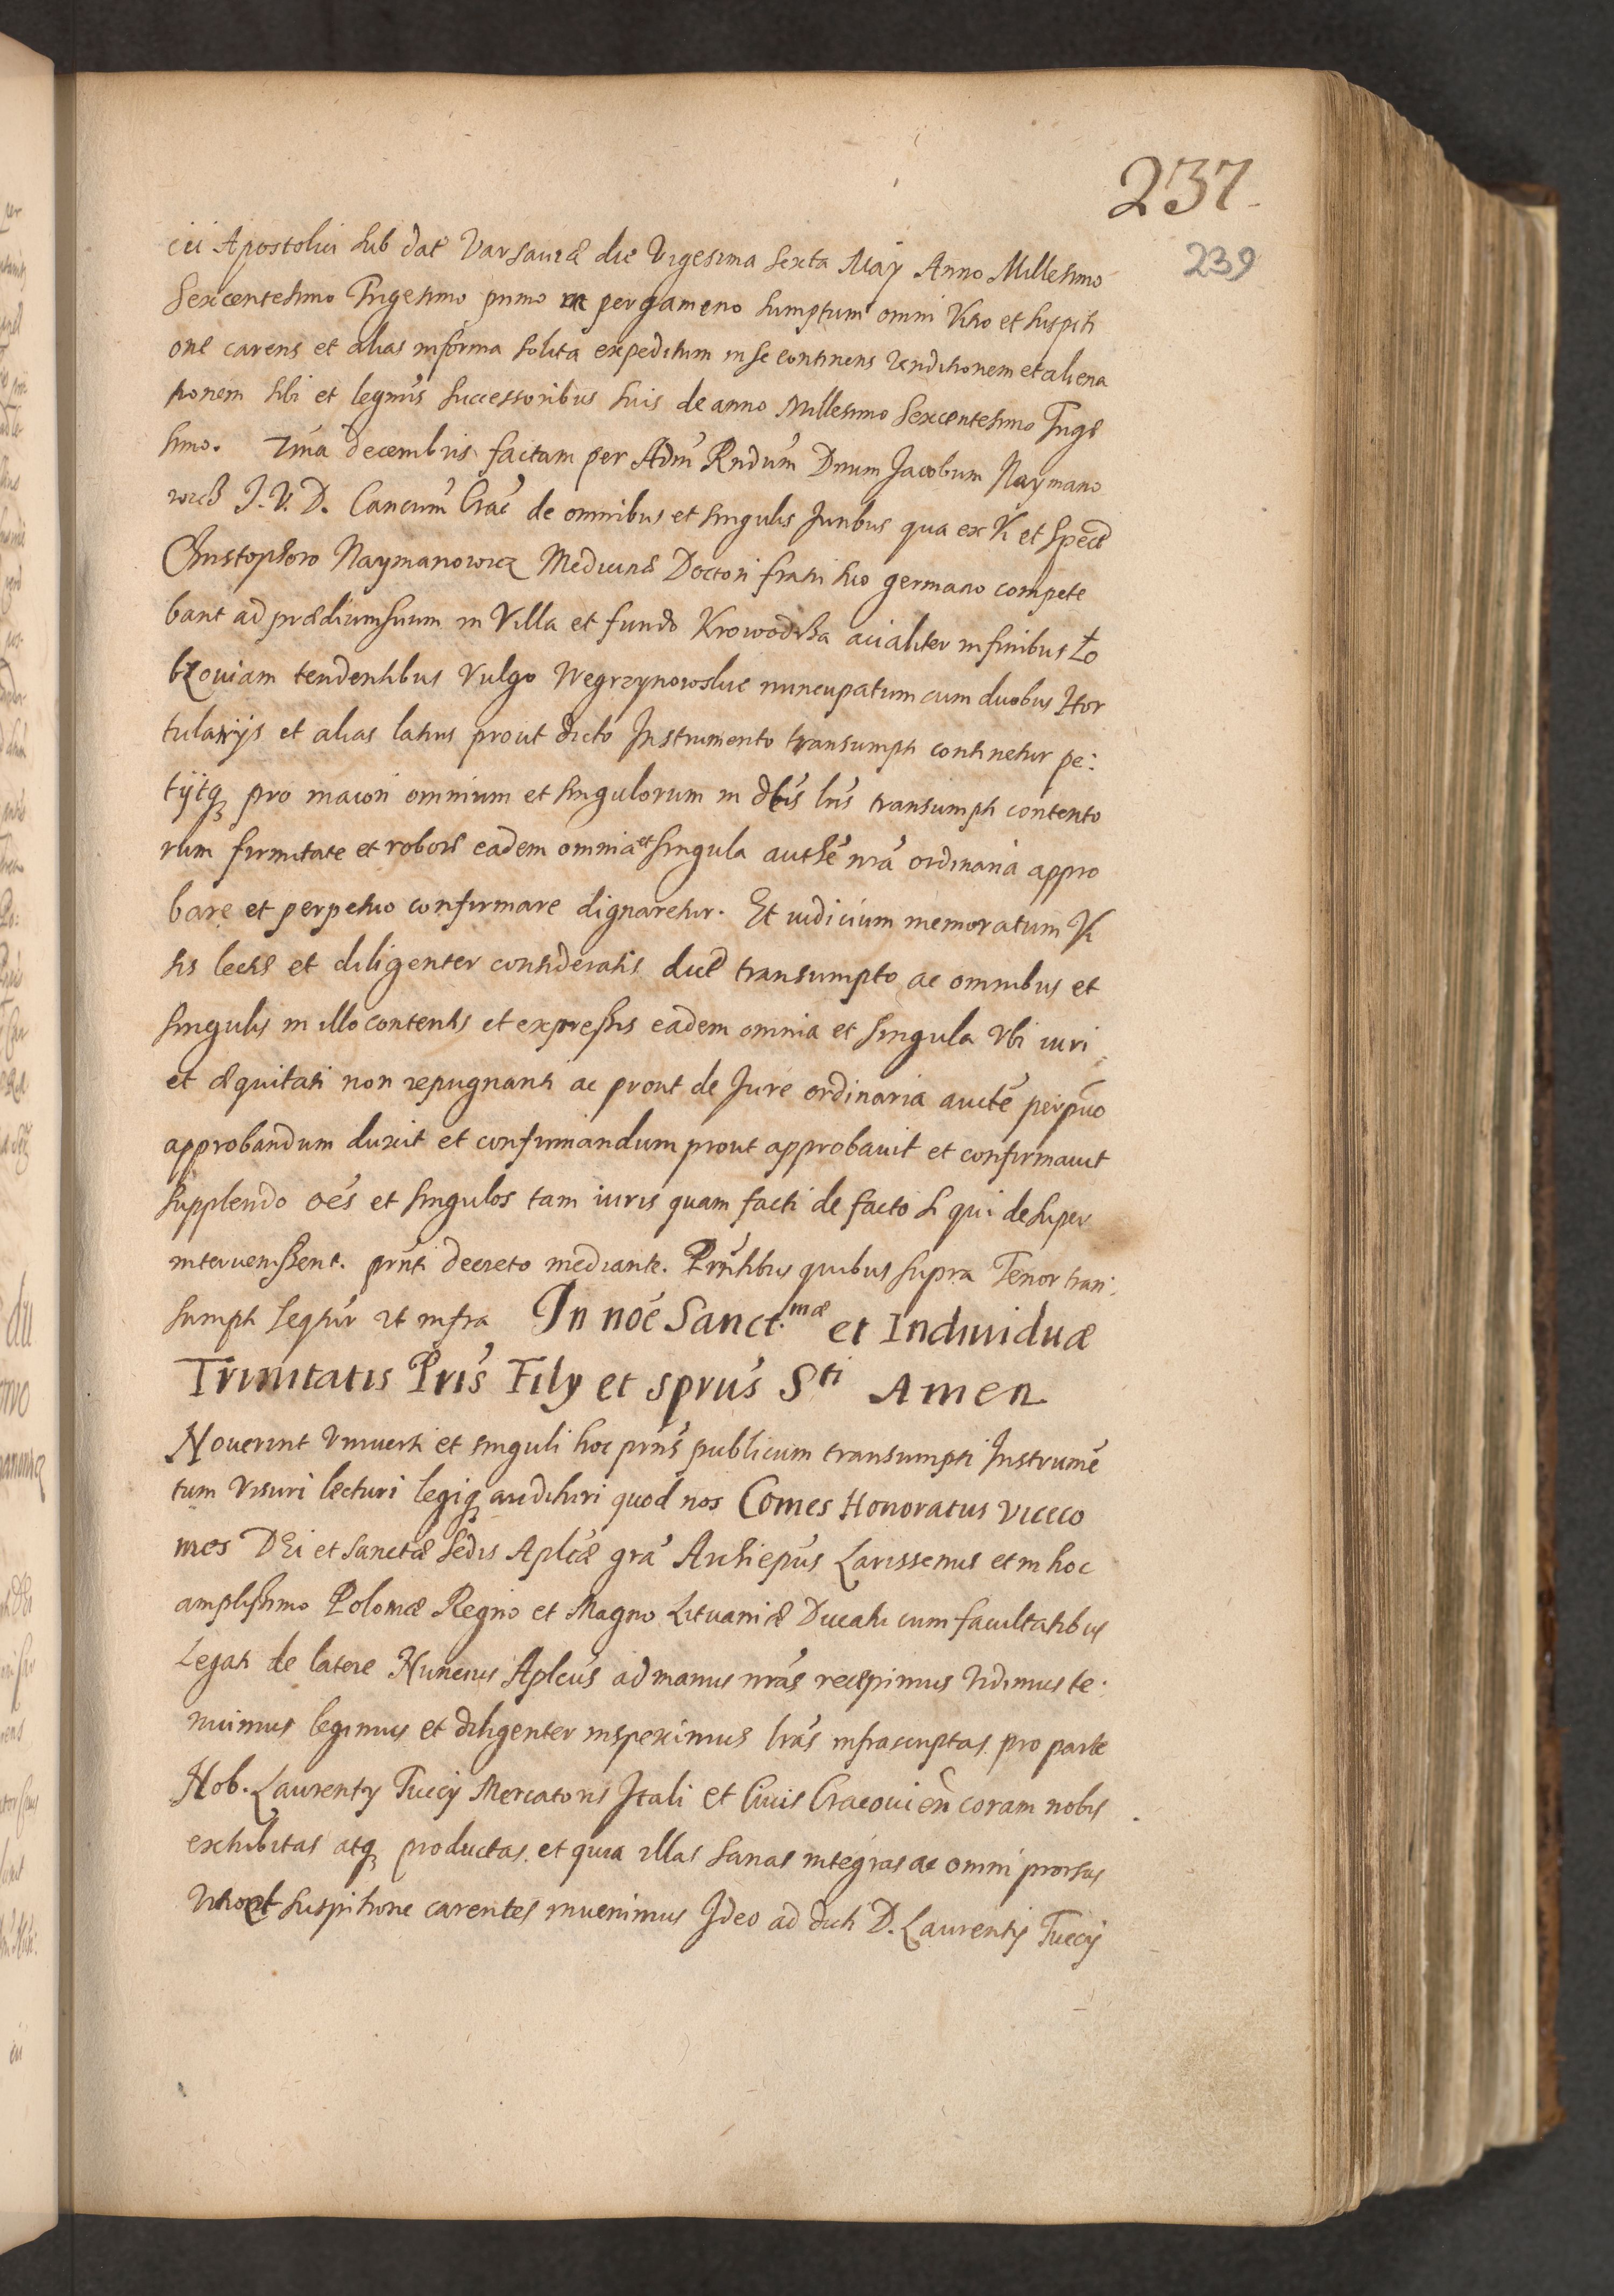 237
239
cii Apostolici sub dat Varsauiæ die Vigesima sexta Maÿ Anno Millesimo
Sexcentesimo Trigesimo primo in pergameno sumptum omni Vitio et suspiti
one carens et alias in forma solita expeditum in se continens Venditionem et aliena
tionem sibi et legmis successoribus suis de anno Millesimo Sexcentesimo Trige
simo. decembris factam per Adm Rndum Dnum Jacobum Naymano
wicz J. V. D. Canoum Crac de omnibus et singulis Juribus qua ex et Spect
Christophoro Naymanowicz Medicinæ Doctori fratri suo germano compete
bant ad prædium suum in Villa et fundo Krowodrza ac ialiter in finibus Ło
bzouiam tendentibus Vulgo Wegrzynowskie nuncupatum cum duobus Hor
tulanijs et alias latius prout dicto Instrumento transumpti continetur pe:
tijtq pro maiori omnium et singulorum in dtis lris transumpti contento
rum firmitate et robore eadem omnia et singula authe nra ordinaria appro
bare et perpetuo confirmare dignaretur. Et iudicium memoratum Vi
sis lectis et diligenter consideratis dicto transumpto ac omnibus et
singulis in illo contentis et expressis eadem omnia et singula Vbi iuri
et æquitati non repugnanti ac prout de Jure ordinaria aucte perpuo
approbandum duxit et confirmandum prout approbauit et confirmauit
supplendo oes et singulos tam iuris quam facti de facto si qui desuper
interuenissent. prnti decreto mediante. Prntibus quibus supra Tenor tran:
sumpti seqtur vt infra In noe Sanct.mæ et Indiuiduæ
Trinitatis Pris Filÿ et sprus Sti Amen
Nouerint Vniuersi et singuli hoc prns publicum transumpti Instrume
tum Visuri lecturi legiq audituri quod nos Comes Honoratus Viceco
mes DEi et Sanctæ Sedis Aplicæ gra Archiepus Larissenus et in hoc
amplissimo Poloniæ Regno et Magno Lituaniæ Ducatu cum facultatibus
Legati de latere Nuncius Aplcus ad manus nras recepimus Vidimus te:
nuimus legimus et diligenter inspeximus lras infrascriptas pro parte
Nob. Laurentÿ Tuccij Mercatoris Itali et Ciuis Cracouien coram nobis
exhibitas atq productas et quia illas sanas integras ac omni prorsus
Vitio et suspitione carentes inuenimus Ideo ad dicti D. Laurentij Tuccij